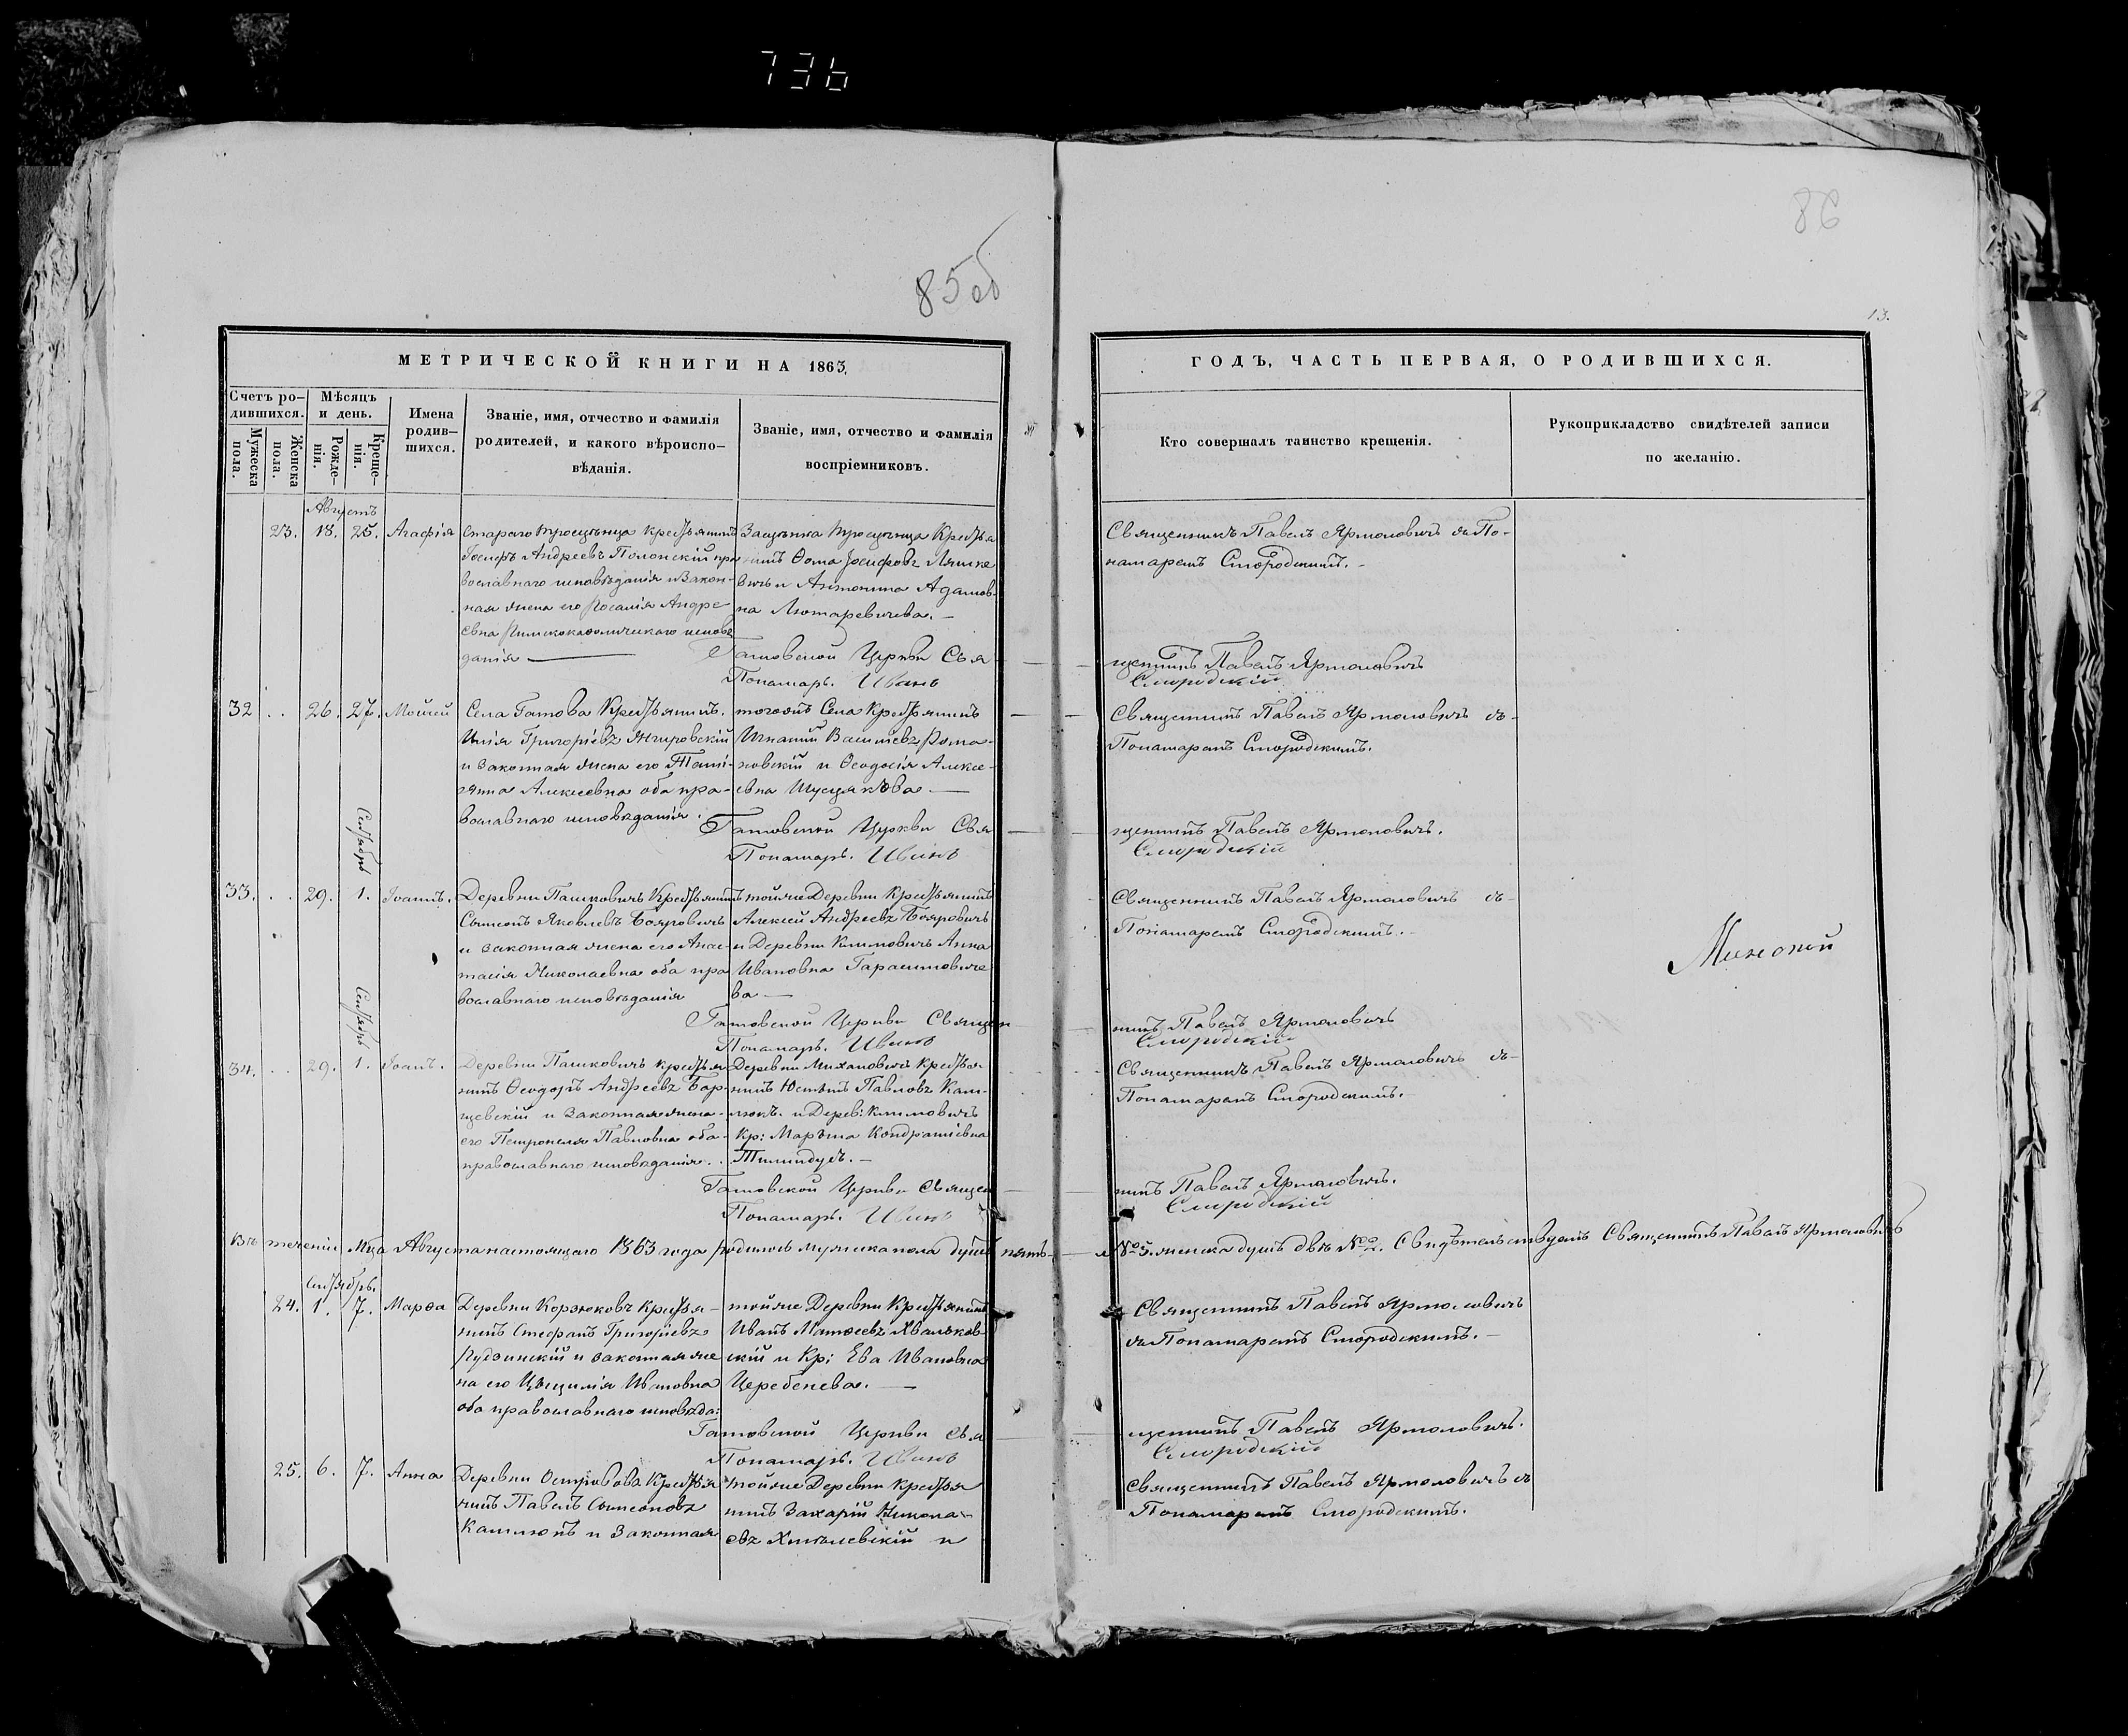 736
85об
86
13.
МЕТРИЧЕСКОЙ КНИГИ НА 1863.
Счетъ ро-
дившихся.
Мужеска
пола.
Женска
пола.
Мѣсяцъ
и день.
Рожде-
нія.
Креще-
нія.
Имена
родив-
шихся.
Званіе, имя, отчество и фамилія
родителей, и какого вѣроиспо-
вѣданія.
Званіе, имя, отчество и фамилія
воспріемниковъ.
ГОДЪ, ЧАСТЬ ПЕРВАЯ, О РОДИВШИХСЯ.
Кто совершалъ таинство крещенія.
Рукоприкладство свидѣтелей записи
по желанію.
Августъ
23. 18. 25. Агафія
Стараго Тростянца Крестьянинъ
Іосифъ Андреевъ Полонскій пра
вославнаго исповѣданія и Закон-
ная жена его Розалія Андре
евна Римскокатолическаго исповѣ
данія
Тростянца Крестья
нинъ Ѳома Іосифовъ Ляшке
вичъ и Антонина Адамов-
на
Священникъ Павелъ Ярмоловичъ съ По-
намаремъ Смородскимъ.
Гатовской Церкви Свя
щенникъ Павелъ Ярмоловичъ
Понамарь. Иванъ
Смородскій
32 . . 26. 27. Моисей
Села Гатова Крестьянинъ
Илія Григоріевъ
и законная жена его Тати-
янна Алексеевна оба пра-
вославнаго исповѣданія.
тогожъ Села Крестьянинъ
Игнатій Васильевъ Рома-
новскій и Ѳеодосія Алексе-
евна
Священникъ Павелъ Ярмоловичъ съ
Понамаремъ Смородскимъ.
Гатовской Церкви Свя
щенникъ Павелъ Ярмоловичъ.
Понамарь. Иванъ
Смородскій
Сентябрь
33. . . 29. 1. Іоаннъ.
Деревни Пашковичъ Крестьянинъ
Сымонъ Яковлевъ Бояровичъ
и законная жена его Анас-
тасія Николаевна оба пра
вославнаго исповѣданія
тойже Деревни Крестьянинъ
Алексей Андреевъ Бояровичъ
и Деревни Климовичъ Анна
Ивановна Гарасимовиче
ва
Священникъ Павелъ Ярмоловичъ съ
Понамаремъ Смородскимъ.
Минской
Гатовской Церкви Священ
никъ Павелъ Ярмоловичъ
Понамарь. Иванъ
Смородскій
Сентябрь
34. . . 29. 1. Іоаннъ.
Деревни Пашковичъ крестья
нинъ Ѳеодоръ Андреевъ Бар-
щевскій и Законная жена
его Петронеля Павловна оба
православнаго исповѣданія.
Деревни Михановичъ Крестья
нинъ Юстинъ Павловъ Каш-
люкъ и Дерев: Климовичъ
Кр: Марьяна Кондратіевна
Священникъ Павелъ Ярмоловичъ съ
Понамаремъ Смородскимъ.
Гатовской Церкви Священ
никъ Павелъ Ярмоловичъ.
Понамарь. Иванъ
Смородскій
Въ теченіи Мца Августа настоящаго 1863 года родилось мужеска пола душъ пять №5. женска душъ двѣ №2. Свидѣтельствуетъ Священникъ Павелъ Ярмоловичъ
Сентябрь
24. 1. 7. Марѳа
Деревни Корзюковъ Крестья-
нинъ Стефанъ Григоріевъ
Рудзинскій и законная же
на его Цецилія Ивановна
оба православнаго исповѣда:
тойже Деревни Крестьянинъ
Иванъ Матѳеевъ Хвальков-
скій и Кр: Ева Ивановна
Церебенева.
Священникъ Павелъ Ярмоловичъ
съ Понамаремъ Смородскимъ.
Гатовской Церкви Свя
щенникъ Павелъ Ярмоловичъ.
Понамарь. Иванъ
Смородскій
25. 6. 7. Анна
Деревни Островова Крестья
нинъ Павелъ Сымоновъ
Кашлюкъ и Законная
тойже Деревни Крестья
нинъ Захарій Никола-
евъ и
Священникъ Павелъ Ярмоловичъ съ
Понамаремъ Смородскимъ.